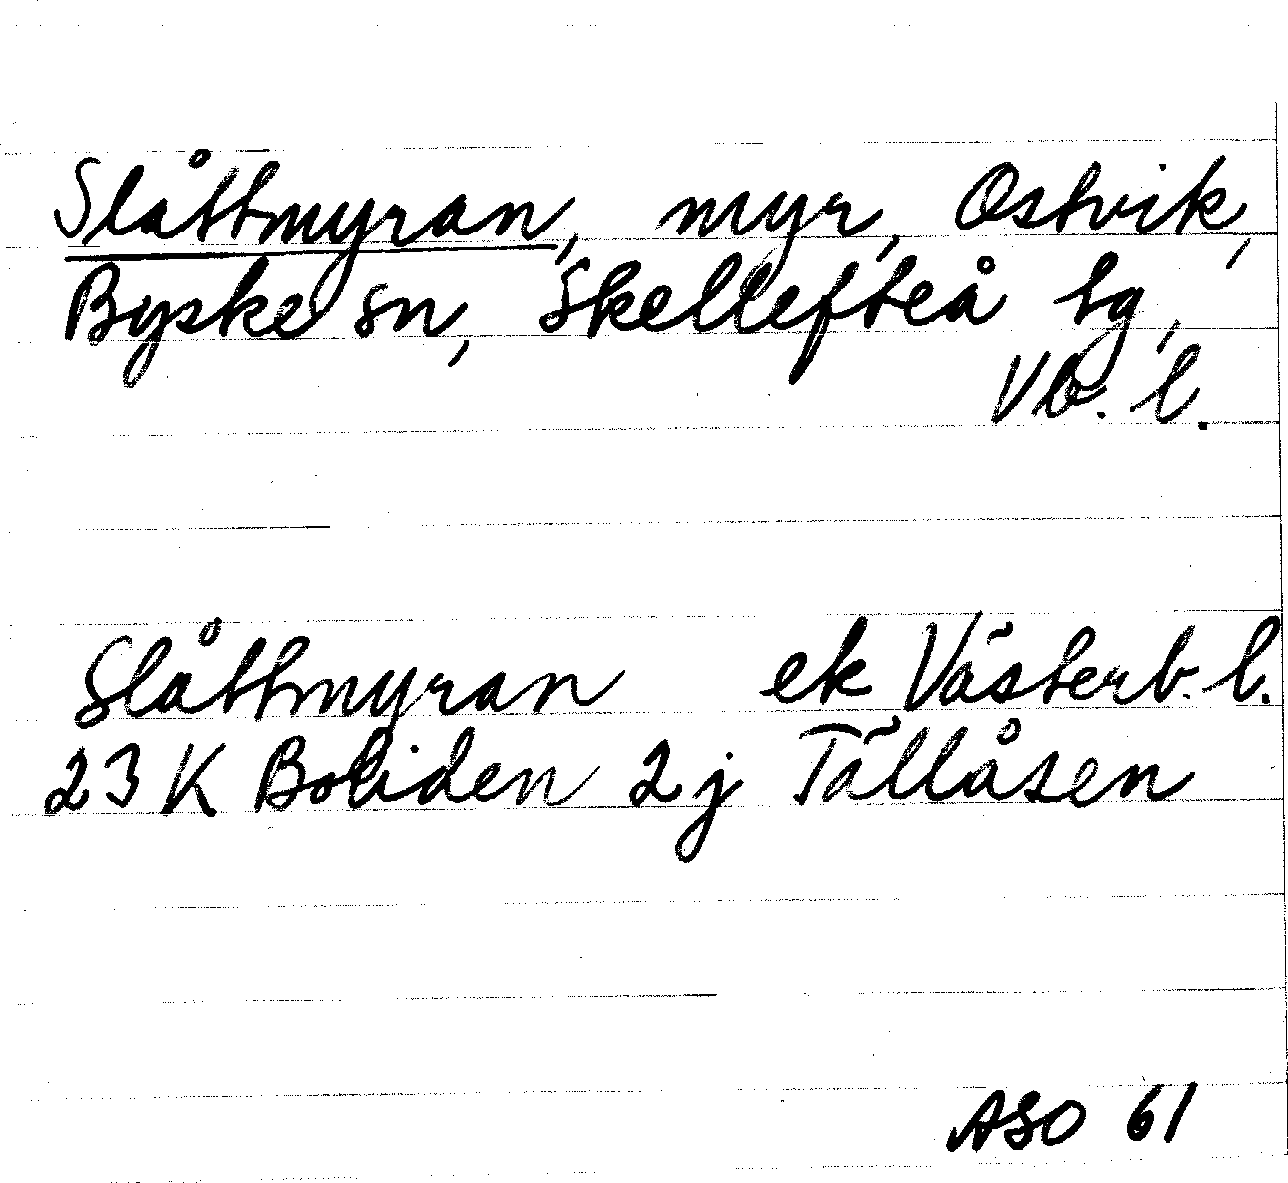 Slåttmyran, myr, Ostvik,
Byske sn, Skellefteå tg,
Vb. l.
Slåttmyran ek Västerb. l.
23 K Boliden 2 j Tällåsen
ASO 61